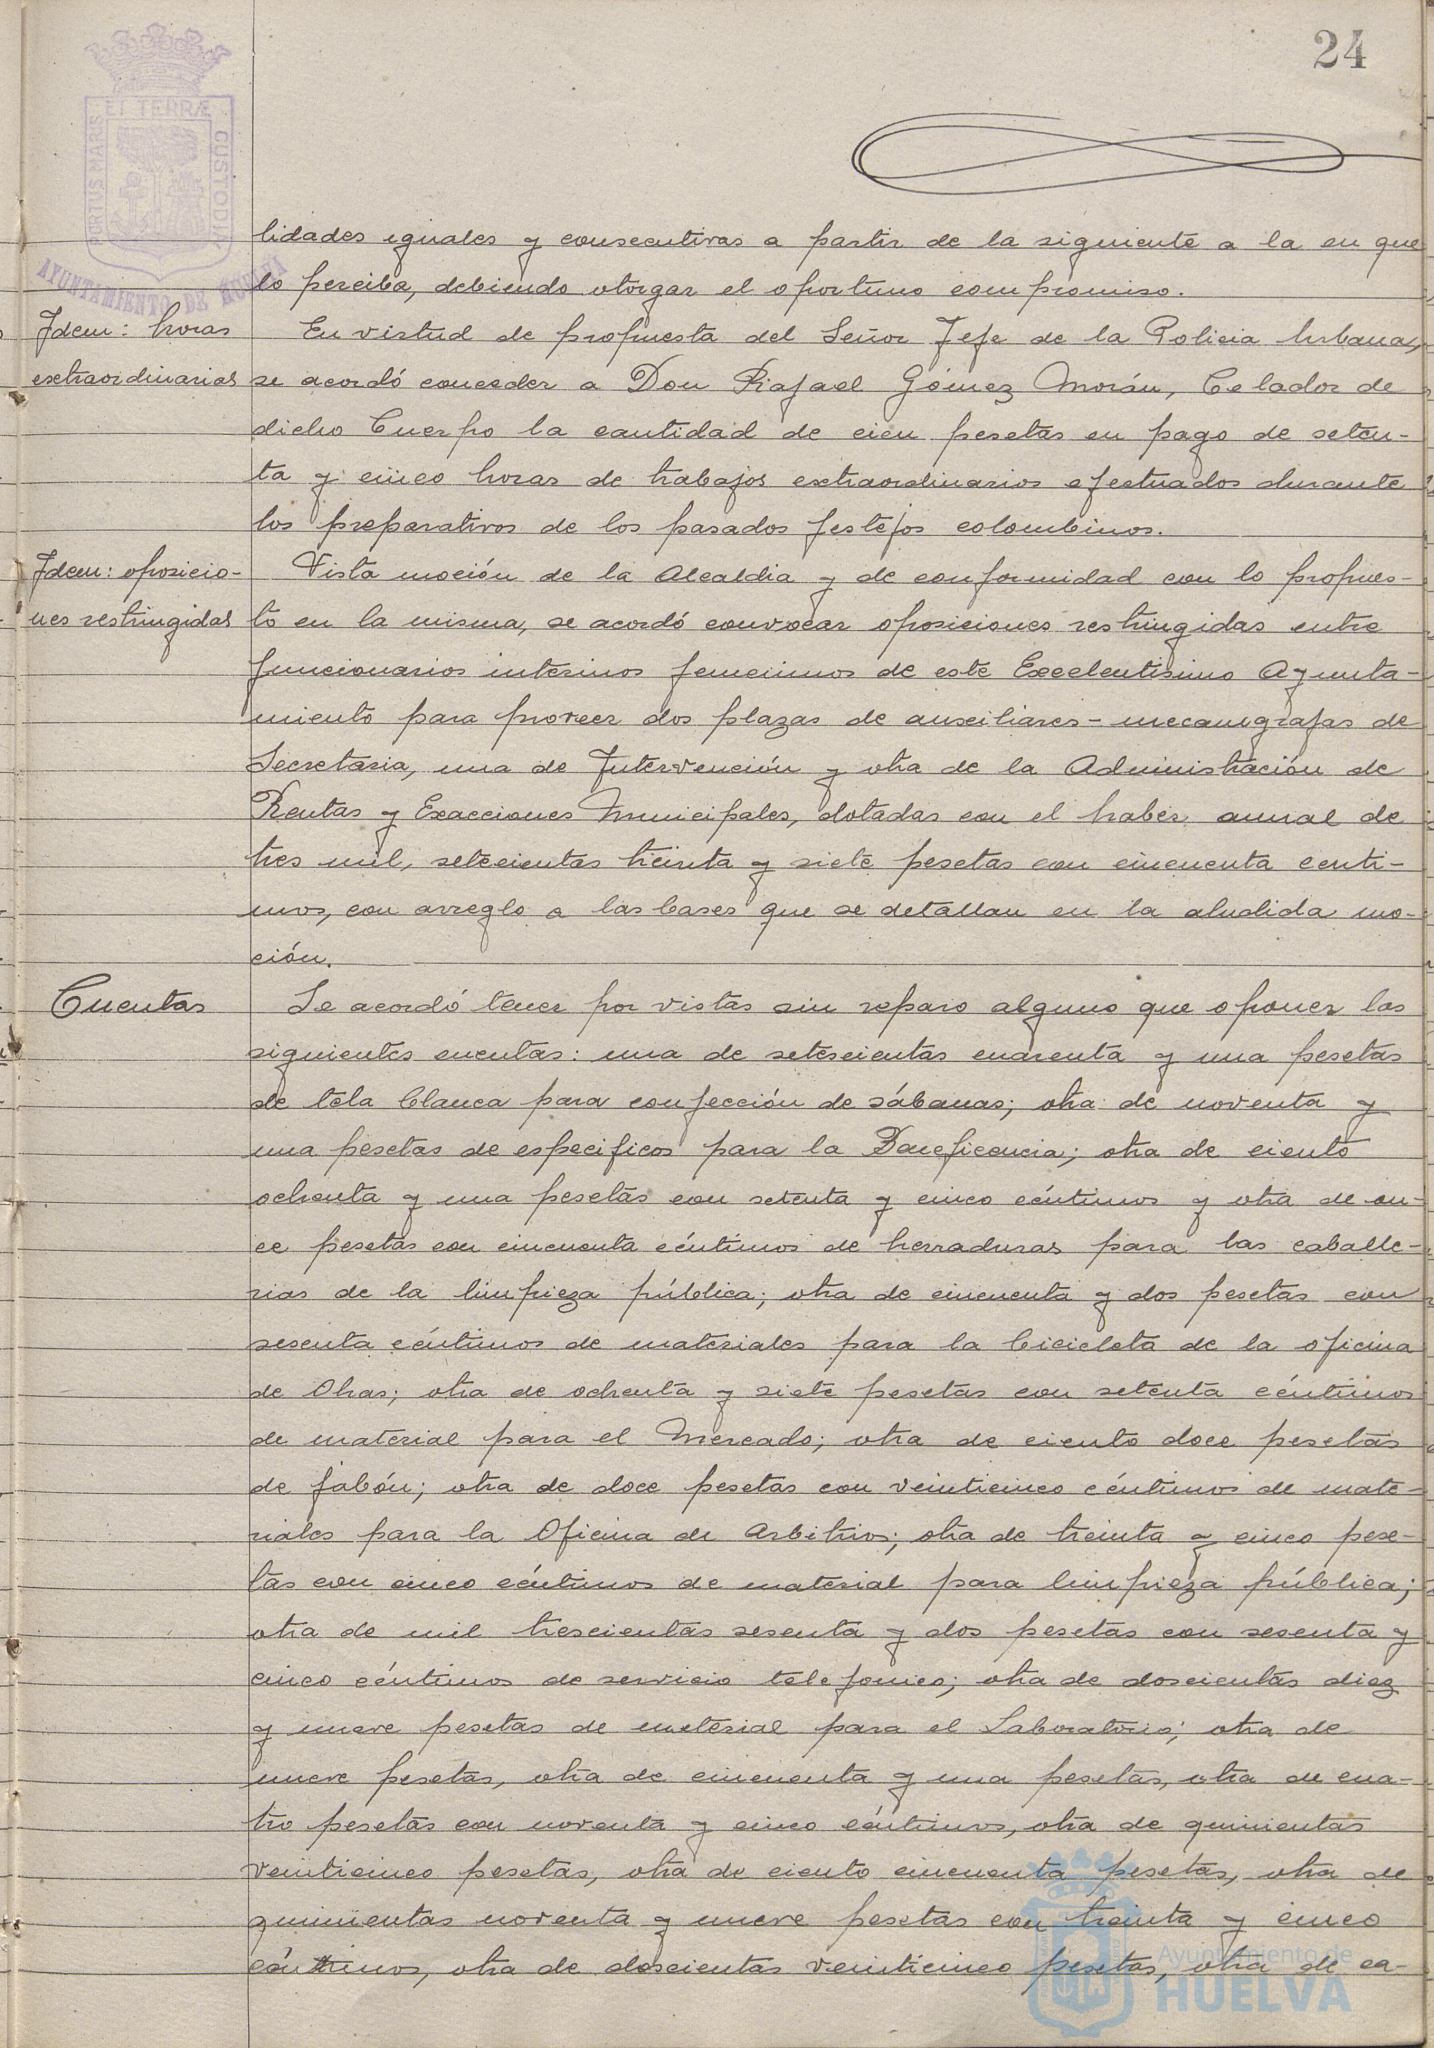 24
PORTUS MARIS ET TERRÆ CUSTODIA
AYUNTAMIENTO DE HUELVA
lidades iguales y consecutivas a partir de la siguiente a la en que
lo perciba, debiendo otorgar el oportuno compromiso.
Idem: horas
extraordinarias
En virtud de propuesta del Señor Jefe de la Policia Urbana,
se acordó conceder a Don Rafael Gómez Morán, Celador de
dicho Cuerpo la cantidad de cien pesetas en pago de seten-
ta y cinco horas de trabajos extraordinarios efectuados durante
los preparativos de los pasados festejos colombinos.
Idem: oposicio-
nes restringidas
Vista moción de la Alcaldia y de conformidad con lo propues-
to en la misma, se acordó convocar oposiciones restringidas entre
funcionarios interinos femeninos de este Excelentisimo Ayunta-
miento para proveer dos plazas de auxiliares-mecanografas de
Secretaria, una de Intervención y otra de la Administración de
Rentas y Exacciones Municipales, dotadas con el haber anual de
tres mil, setecientas treinta y siete pesetas con cincuenta centi-
mos, con arreglo a las bases que se detallan en la aludida mo-
ción.
Cuentas
Se acordó tener por vistas sin reparo alguno que oponer las
siguientes cuentas: una de setescientas cuarenta y una pesetas
de tela blanca para confección de sábanas; otra de noventa y
una pesetas de especificos para la Beneficencia; otra de ciento
ochenta y una pesetas con setenta y cinco céntimos y otra de on-
ce pesetas con cincuenta céntimos de herraduras para las caballe-
rias de la limpieza pública; otra de cincuenta y dos pesetas con
sesenta céntimos de materiales para la bicicleta de la oficina
de Obras; otra de ochenta y siete pesetas con setenta céntimos
de material para el Mercado; otra de ciento doce pesetas
de jabón; otra de doce pesetas con veinticinco céntimos de mate-
riales para la Oficina de Arbitrios; otra de treinta y cinco pese-
tas con cinco céntimos de material para limpieza pública;
otra de mil trescientas sesenta y dos pesetas con sesenta y
cinco céntimos de servicio telefonico; otra de doscientas diez
y nueve pesetas de material para el Laboratorio; otra de
nueve pesetas, otra de cincuenta y una pesetas, otra de cua-
tro pesetas con noventa y cinco céntimos, otra de quinientas
veinticinco pesetas, otra de ciento cincuenta pesetas, otra de
quinientas noventa y nueve pesetas con treinta y cinco
céntimos, otra de doscientas veinticinco pesetas, otra de ca-
Ayuntamiento de
HUELVA